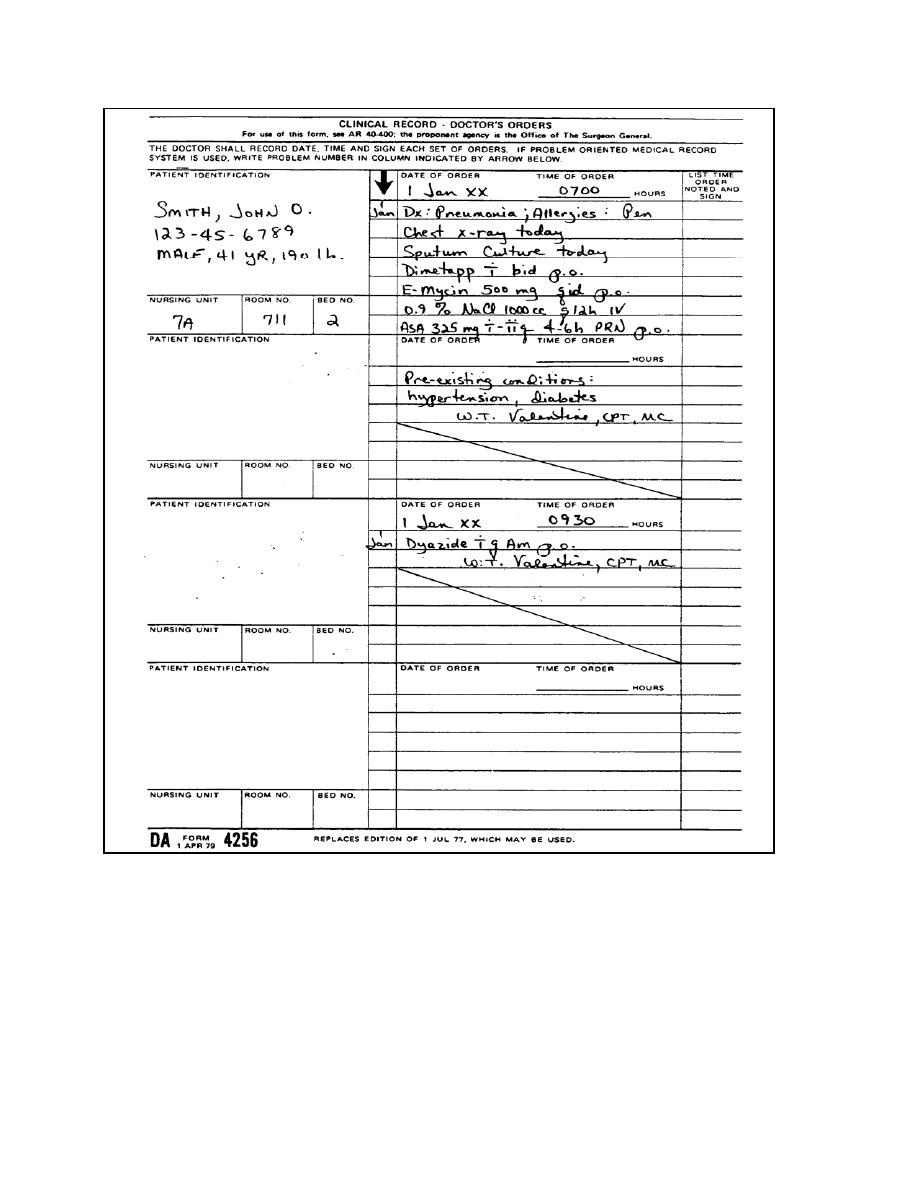 CLINICAL RECORD - DOCTOR'S ORDERS
For use of this form, see AR 40-400; the proponent agency is the Office of The Surgeon General.
THE DOCTOR SHALL RECORD DATE, TIME AND SIGN EACH SET OF ORDERS. IF PROBLEM ORIENTED MEDICAL RECORD
SYSTEM IS USED, WRITE PROBLEM NUMBER IN COLUMN INDICATED BY ARROW BELOW.
PATIENT IDENTIFICATION
SMITH, JOHN O.
123-45-6789
MALE, 41 YR, 190 lb.
NURSING UNIT ROOM NO. BED NO.
7A 711 2
DATE OF ORDER TIME OF ORDER
1 Jan XX 0700 HOURS
LIST TIME
ORDER
NOTED AND
SIGN
1 Jan Dx: Pneumonia; Allergies: Pen
Chest x-ray today
Sputum Culture today
Dimetapp ṫ bid p.o.
E-Mycin 500 mg qid p.o.
0.9 % NaCl 1000cc q12h IV
ASA 325 mg ṫ-ṫṫ q 4-6h PRN p.o.
PATIENT IDENTIFICATION
DATE OF ORDER TIME OF ORDER
HOURS
Pre-existing conditions:
hypertension, diabetes
W.T. Valentine, CPT, MC
NURSING UNIT ROOM NO. BED NO.
PATIENT IDENTIFICATION
DATE OF ORDER TIME OF ORDER
1 Jan XX 0930 HOURS
1 Jan Dyazide ṫ q Am p.o.
W.T. Valentine, CPT, MC
NURSING UNIT ROOM NO. BED NO.
PATIENT IDENTIFICATION
DATE OF ORDER TIME OF ORDER
HOURS
NURSING UNIT ROOM NO. BED NO.
DA FORM 4256
1 APR 79
REPLACES EDITION OF 1 JUL 77, WHICH MAY BE USED.